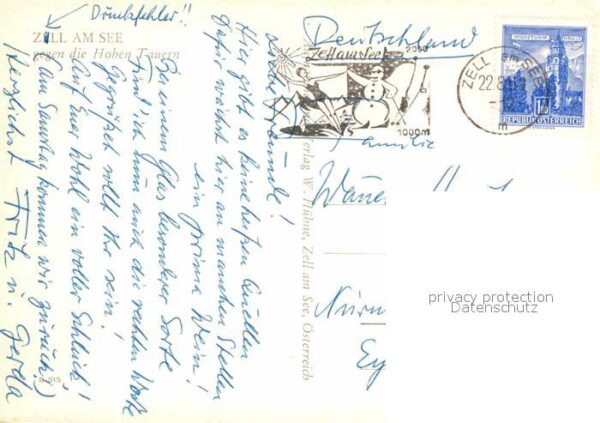 Druckfehler!!
ZELL AM SEE
gegen die Hohen Tauern
Liebe Freunde!
Hier gibt es keine heißen Quellen
Dafür wächst hier an manchen Stellen
ein prima Wein!
Bei einem Glas besonderer Sorte
find' ich dann auch die rechten Worte
Gegrüßet sollt Ihr sein!
Auf Euer Wohl ein voller Schluck!
(am Samstag kommen wir zurück!)
Herzlichst Fritz u. Gerda
B 515
Verlag W. Hühne, Zell am See, Österreich
Deutschland
Zell am See
2000
1000m
ZELL AM SEE
22.8.6
MÜNZTURM HALL I. T.
REPUBLIK ÖSTERREICH
Familie
Nürn
privacy protection
Datenschutz